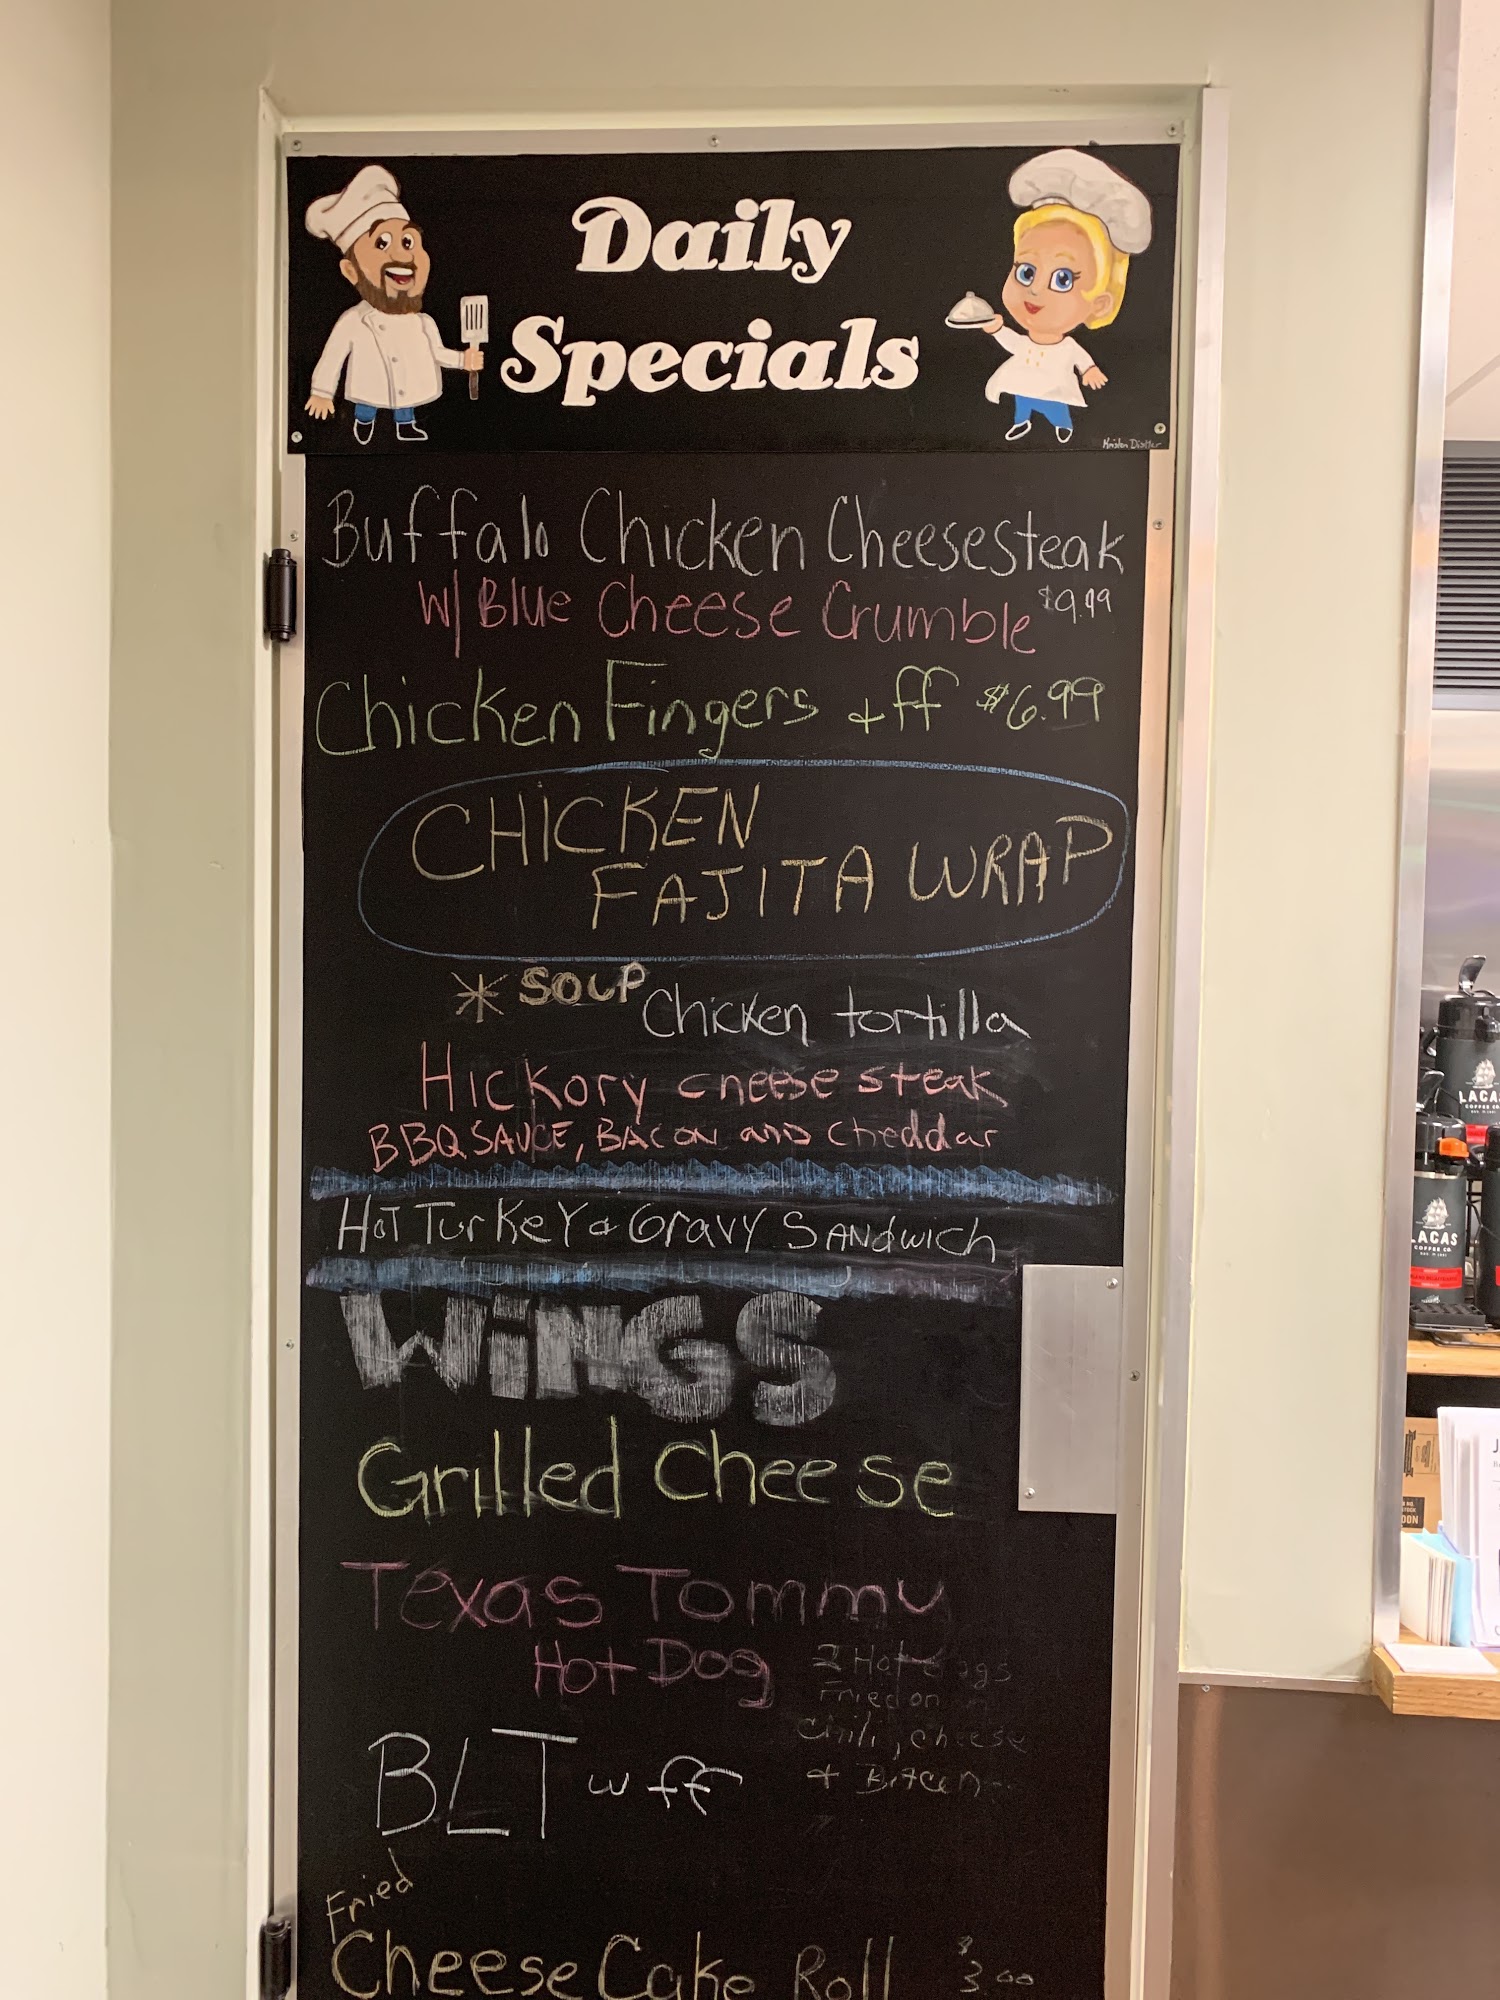 Daily
Specials
Buffalo Chicken Cheesesteak
w/ Blue Cheese Crumble $9.99
Chicken Fingers + ff $6.99
CHICKEN
FAJITA WRAP
* SOUP Chicken tortilla
Hickory cheese steak
BBQ SAUCE, BACON and Cheddar
HOT TurKeY & Gravy SANdwich
WiNGS
Grilled Cheese
Texas Tommy
Hot Dog
2 Hot dogs
Fried on
Chili, cheese
+ Bacon
BLT w ff
Fried
Cheese Cake Roll $3.00
LACAS
COFFEE CO.
LACAS
COFFEE CO.